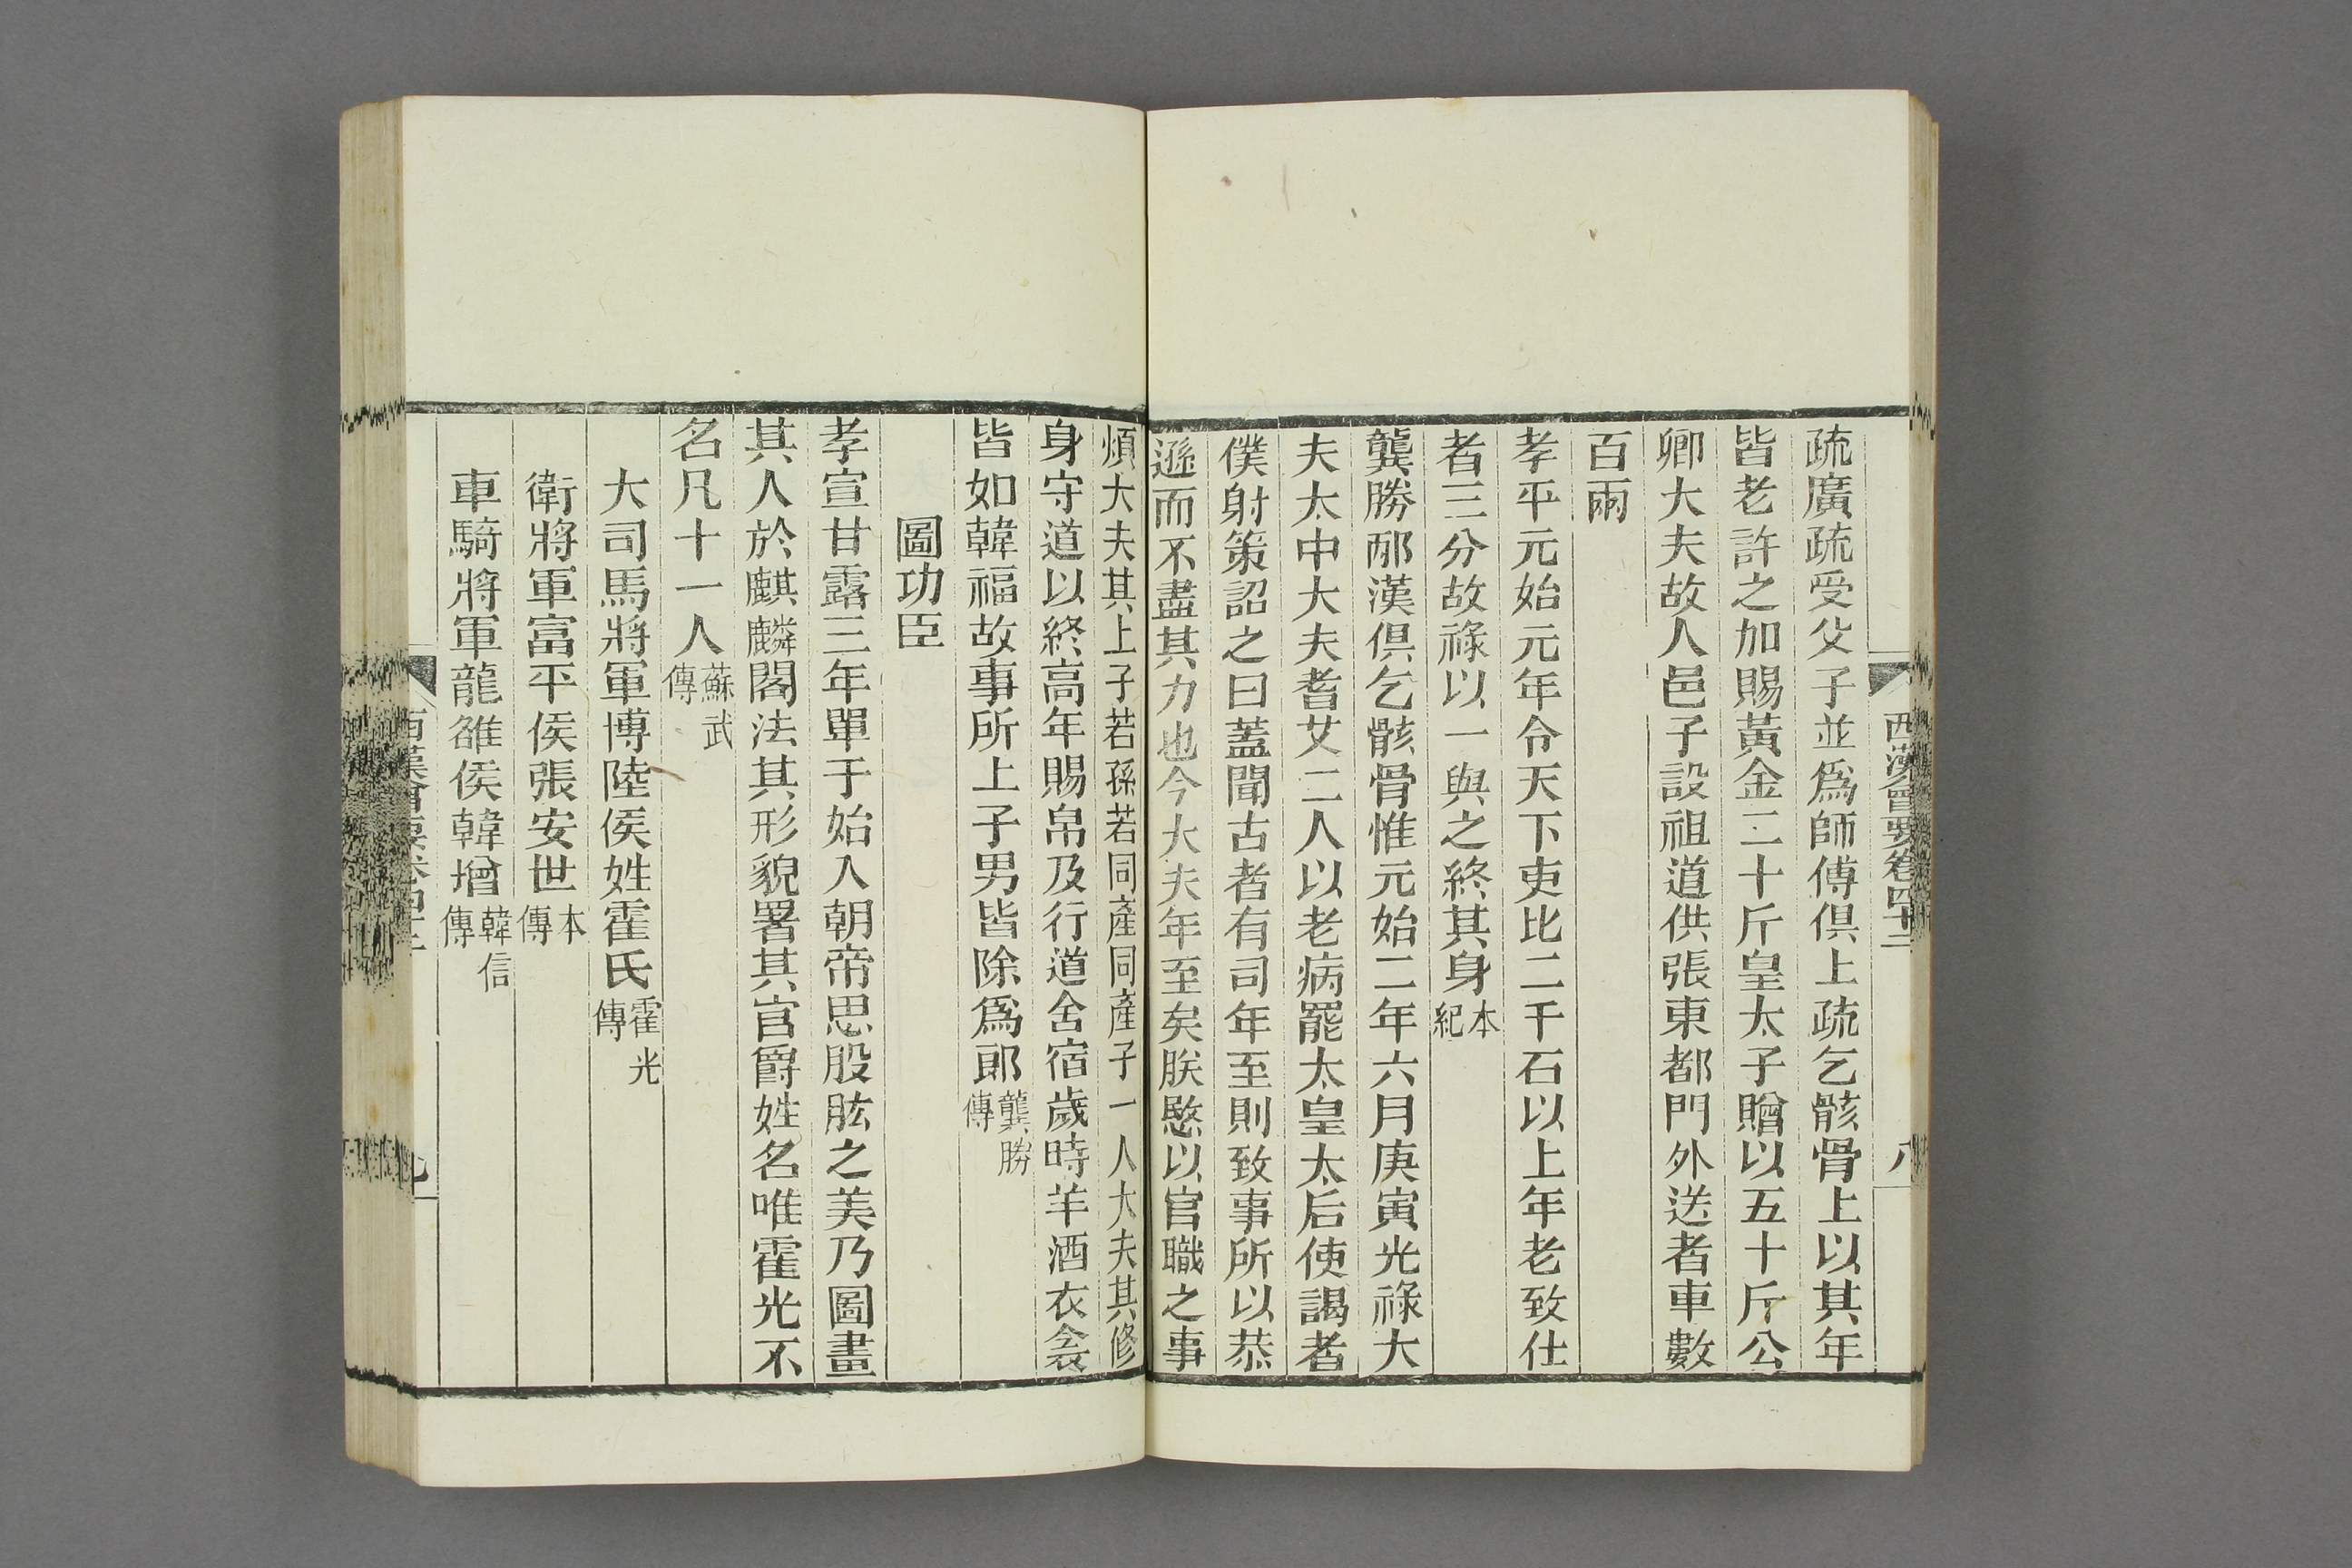 西漢會要卷四十二
八
疏廣疏受父子並爲師傅俱上疏乞骸骨上以其年
皆老許之加賜黃金二十斤皇太子贈以五十斤公
卿大夫故人邑子設祖道供張東都門外送者車數
百兩
孝平元始元年令天下吏比二千石以上年老致仕
者三分故祿以一與之終其身本紀
龔勝邴漢俱乞骸骨惟元始二年六月庚寅光祿大
夫太中大夫耆艾二人以老病罷太皇太后使謁者
僕射策詔之曰蓋聞古者有司年至則致事所以恭
遜而不盡其力也今大夫年至矣朕愍以官職之事
煩大夫其上子若孫若同產同產子一人大夫其修
身守道以終高年賜帛及行道舍宿歲時羊酒衣衾
皆如韓福故事所上子男皆除爲郎龔勝傳
圖功臣
孝宣甘露三年單于始入朝帝思股肱之美乃圖畫
其人於麒麟閣法其形貌署其官爵姓名唯霍光不
名凡十一人蘇武傳
大司馬將軍博陸侯姓霍氏霍光傳
衛將軍富平侯張安世本傳
車騎將軍龍雒侯韓增韓信傳